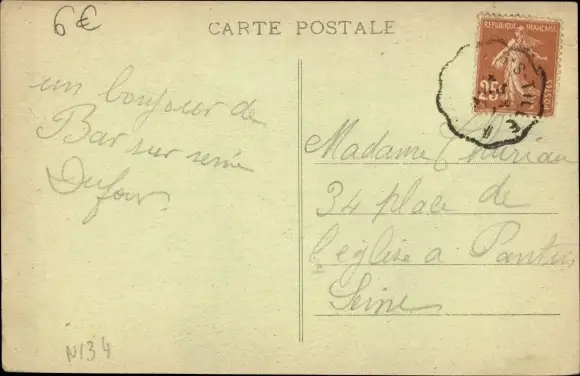 6€
CARTE POSTALE
REPUBLIQUE FRANÇAISE
25c
POSTES
un bonjour de
Bar sur seine
Dufour
Madame
34 place de
l'eglise a Pantin
Seine
N134